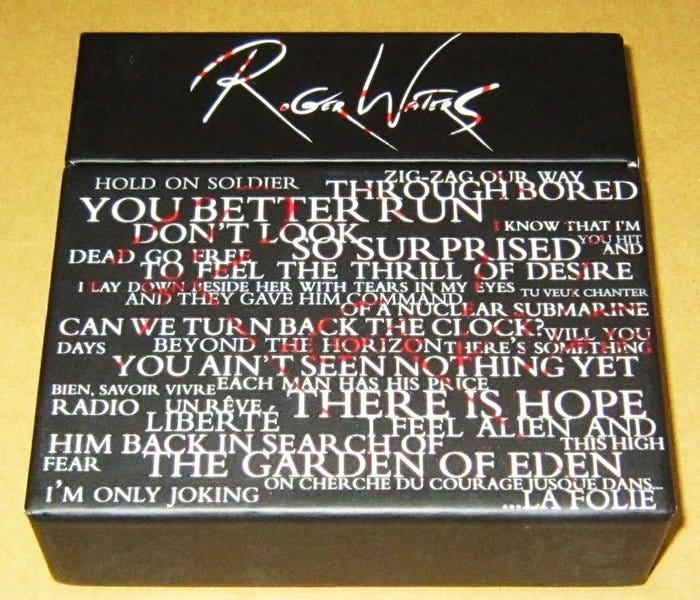 Roger Waters
HOLD ON SOLDIER
ZIG-ZAG OUR WAY
THROUGH BORED
YOU BETTER RUN
I KNOW THAT I'M
DON'T LOOK
SO SURPRISED
YOU HIT
AND
DEAD GO FREE
TO FEEL THE THRILL OF DESIRE
I LAY DOWN BESIDE HER WITH TEARS IN MY EYES
TU VEUX CHANTER
AND THEY GAVE HIM COMMAND
OF A NUCLEAR SUBMARINE
CAN WE TURN BACK THE CLOCK?
WILL YOU
DAYS
BEYOND THE HORIZON
THERE'S SOMETHING
YOU AIN'T SEEN NOTHING YET
BIEN, SAVOIR VIVRE
EACH MAN HAS HIS PRICE
RADIO
UN RÊVE
THERE IS HOPE
LIBERTÉ
I FEEL ALIEN AND
HIM BACK IN SEARCH OF
THIS HIGH
FEAR
THE GARDEN OF EDEN
ON CHERCHE DU COURAGE JUSQUE DANS...
I'M ONLY JOKING
...LA FOLIE